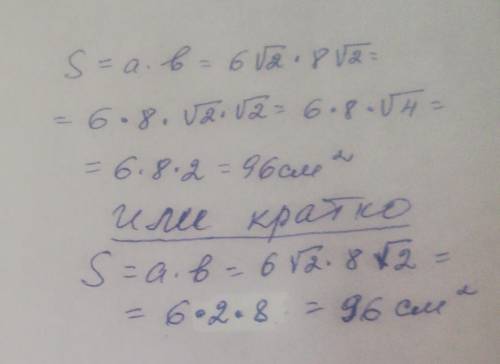 S = a · b = 6√2 · 8√2 =
= 6 · 8 · √2 · √2 = 6 · 8 · √4 =
= 6 · 8 · 2 = 96 см²
или кратко
S = a · b = 6√2 · 8√2 =
= 6 · 2 · 8 = 96 см²